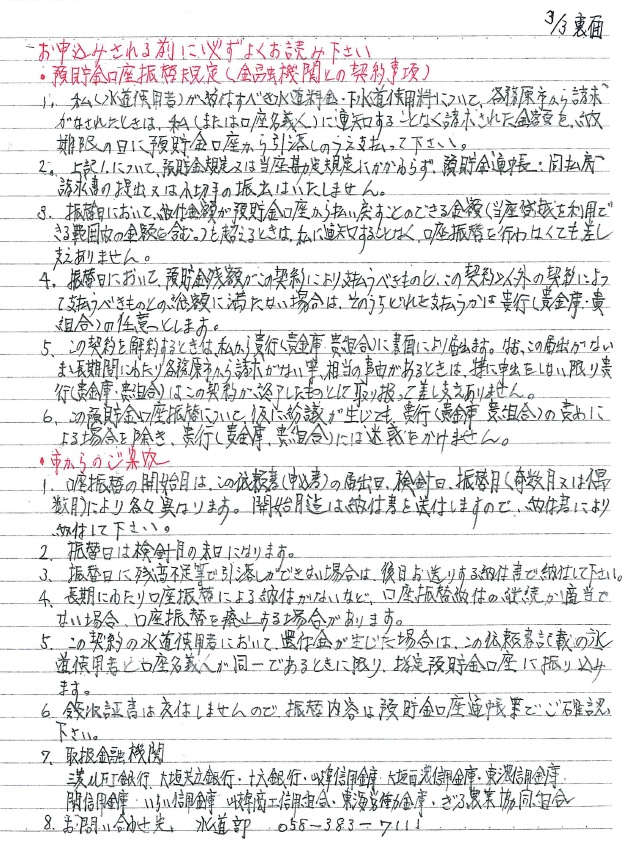 3/3 裏面
お申込みされる前に必ずよくお読み下さい
・預貯金口座振替規定(金融機関との契約事項)
1. 私(水道使用者)が納付すべき水道料金・下水道使用料について、各務原市から請求
がなされたときは、私(または口座名義人)に通知することなく請求された金額を、納
期限の日に預貯金口座から引落しのうえ支払って下さい。
2. 上記1.について、預貯金規定又は当座勘定規定にかかわらず、預貯金通帳・同払戻
請求書の提出又は小切手の振出はいたしません。
3. 振替日において、納付金額が預貯金口座から払い戻すことのできる金額(当座貸越を利用で
きる範囲内の金額を含む。)を超えるときは、私に通知することなく、口座振替を行わなくても差し
支えありません。
4. 振替日において、預貯金残額がこの契約により支払うべきものと、この契約以外の契約によっ
て支払うべきものとの総額に満たない場合は、そのうちどれを支払うかは貴行(貴金庫・貴
組合)の任意とします。
5. この契約を解約するときは、私から貴行(貴金庫 貴組合)に書面により届出ます。なお、この届出がない
まま長期間にわたり各務原市から請求がない等、相当の事由があるときは、特に申出をしない限り貴
行(貴金庫・貴組合)はこの契約が終了したものとして取り扱って差し支えありません。
6. この預貯金口座振替について、仮に紛議が生じても、貴行(貴金庫 貴組合)の責めに
よる場合を除き、貴行(貴金庫、貴組合)には迷惑をかけません。
・市からのご案内
1. 口座振替の開始月は、この依頼者(申込者)の届出日、検針日、振替月(奇数月又は偶
数月)により各々異なります。開始月迄は納付書を送付しますので、納付書により
納付して下さい。
2. 振替日は検針月の末日になります。
3. 振替日に残高不足等で引落しができない場合は、後日お送りする納付書で納付して下さい。
4. 長期にわたり口座振替による納付がないなど、口座振替納付の継続が適当で
ない場合、口座振替を廃止する場合があります。
5. この契約の水道使用者において、還付金が生じた場合は、この依頼書記載の水
道使用者と口座名義人が同一であるときに限り、指定預貯金口座に振り込み
ます。
6. 領収証書は交付しませんので、振替内容は預貯金口座通帳等でご確認
下さい。
7. 取扱金融機関
三菱UFJ銀行、大垣共立銀行・十六銀行・岐阜信用金庫・大垣西濃信用金庫・東濃信用金庫・
関信用金庫・いちい信用金庫 岐阜商工信用組合・東海労働金庫・ぎふ農業協同組合
8. お問い合わせ先、水道部 058-383-7111